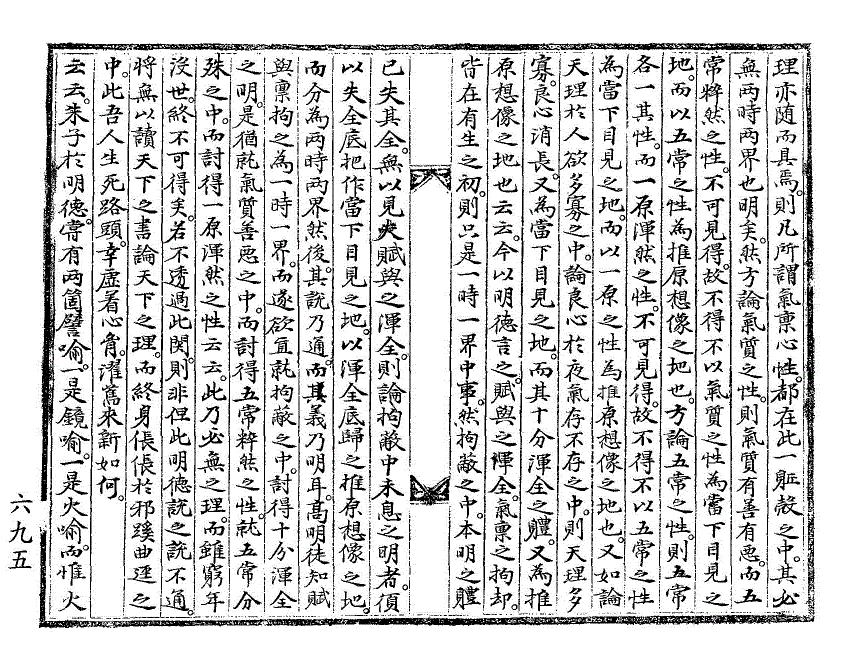 理亦隨而具焉。則凡所謂氣稟心性。都在此一軀殼之中。其必
無兩時兩界也明矣。然方論氣質之性。則氣質有善有惡。而五
常粹然之性。不可見得。故不得不以氣質之性為當下目見之
地。而以五常之性為推原想像之地也。方論五常之性。則五常
各一其性。而一原渾然之性。不可見得。故不得不以五常之性
為當下目見之地。而以一原之性為推原想像之地也。又如論
天理於人欲多寡之中。論良心於夜氣存不存之中。則天理多
寡。良心消長。又為當下目見之地。而其十分渾全之軆。又為推
原想像之地也云云。今以明德言之。賦與之渾全。氣稟之拘却。
皆在有生之初。則只是一時一界中事。然拘蔽之中。本明之軆
已失其全。無以見夫賦與之渾全。則論拘蔽中未息之明者。須
以失全底把作當下目見之地。以渾全底歸之推原想像之地。
而分為兩時兩界然後。其說乃通。而其義乃明耳。高明徒知賦
與稟拘之為一時一界。而遂欲直就拘蔽之中。討得十分渾全
之明。是猶就氣質善惡之中。而討得五常粹然之性。就五常分
殊之中。而討得一原渾然之性云云。此乃必無之理。而雖窮年
沒世。終不可得矣。若不透過此関。則非但此明德說之說不通。
將無以讀天下之書論天下之理。而終身倀倀於邪蹊曲逕之
中。此吾人生死路頭。幸虛着心胷。濯舊來新如何。
云云。朱子於明德。甞有兩箇譬喻。一是鏡喻。一是火喻。而惟火
六九五